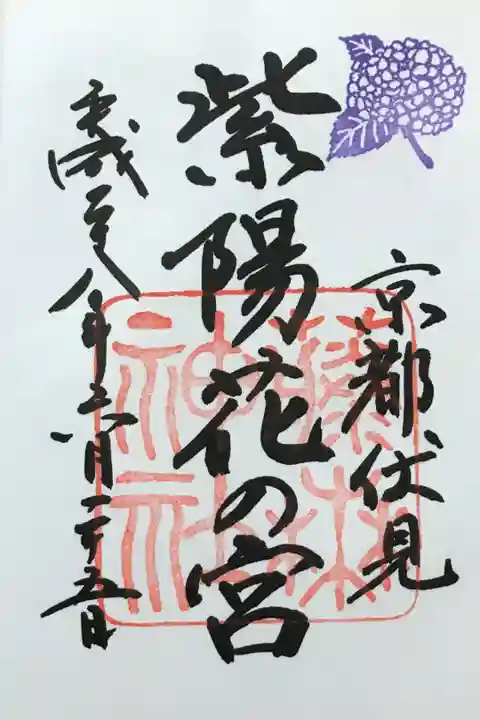 京都伏見
紫陽花の宮
平成二十八年六月二十五日
藤森
神社